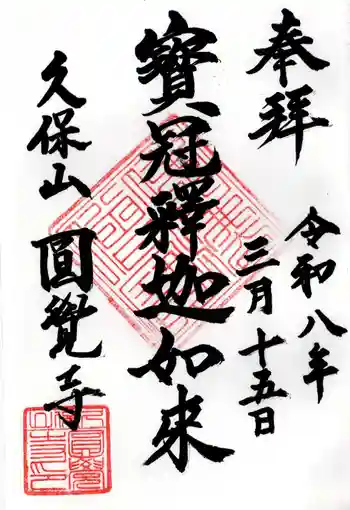 奉拜
令和八年
三月十五日
寶冠釋迦如来
久保山
圓覺寺